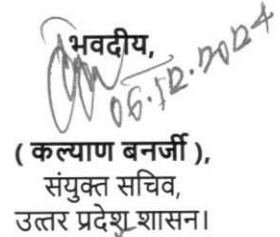 भवदीय,
06.12.2024
( कल्याण बनर्जी ),
संयुक्त सचिव,
उत्तर प्रदेश शासन।